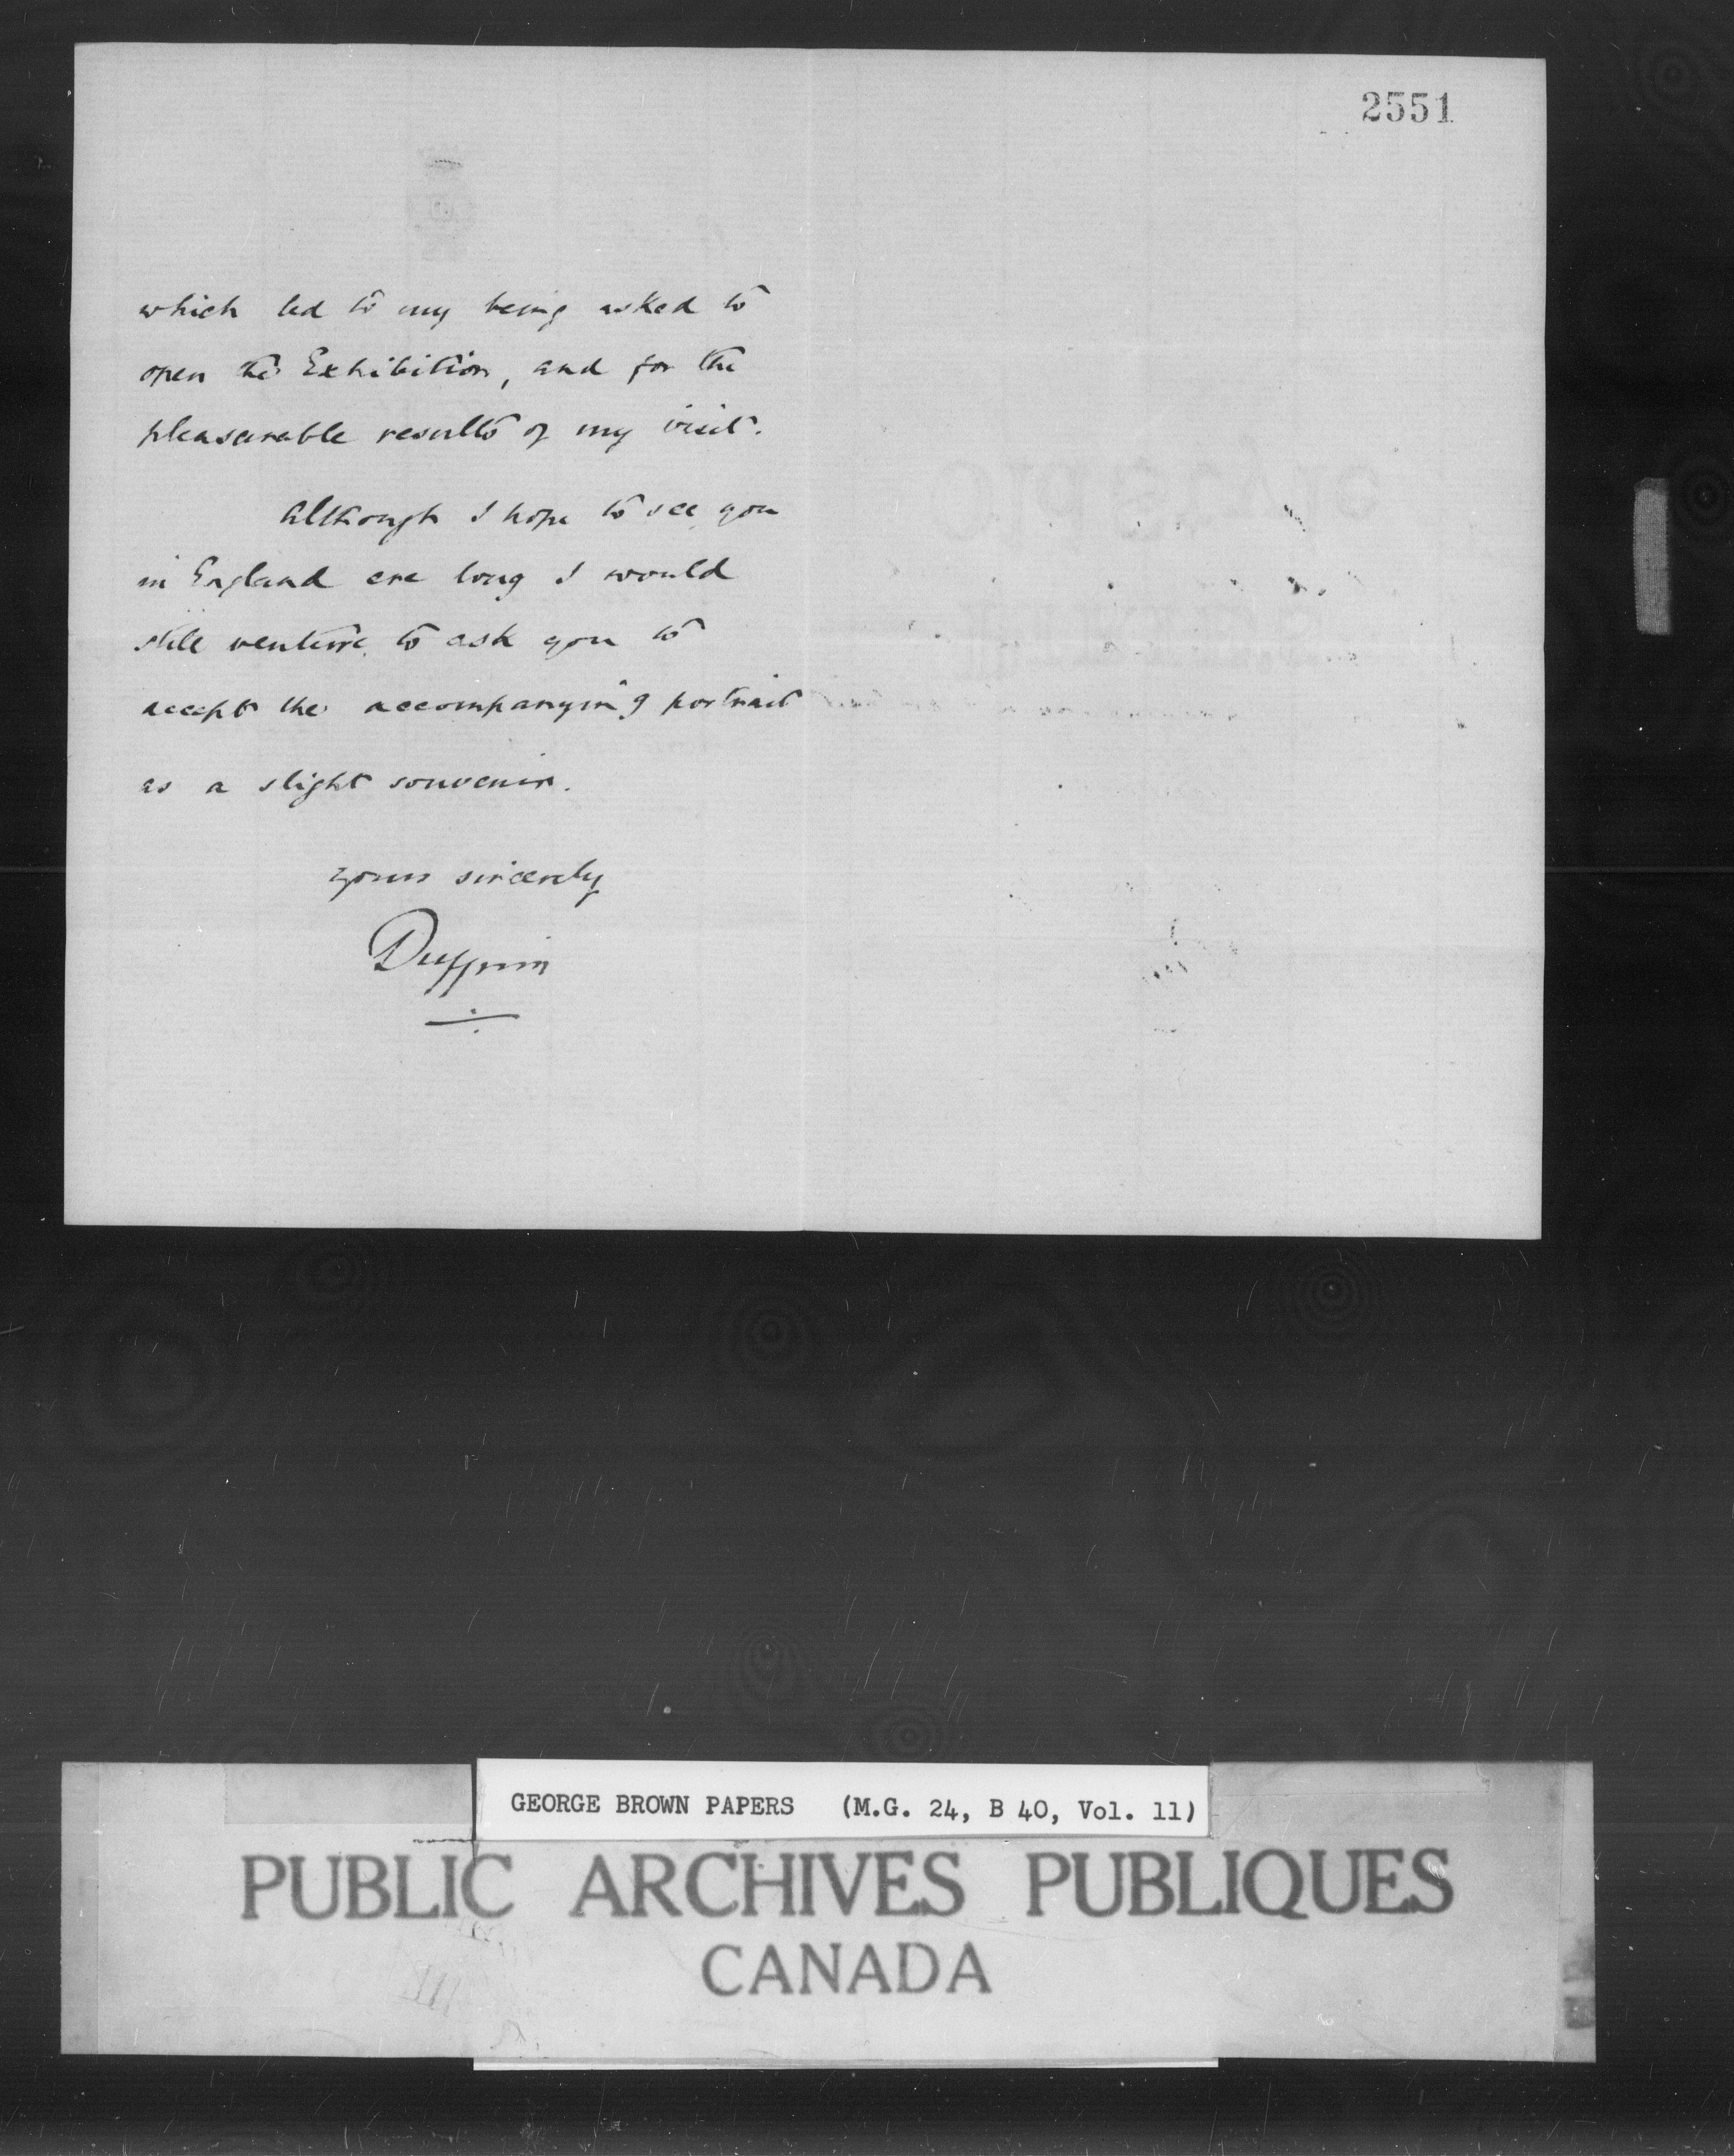 2551
which led to my being asked to
open the Exhibition, and for the
pleasurable results of my visit.
Although I hope to see you
in England ere long I would
still venture to ask you to
accept the accompanying portrait
as a slight souvenir.
Yours sincerely
Dufferin
GEORGE BROWN PAPERS (M.G. 24, B 40, Vol. 11)
PUBLIC ARCHIVES PUBLIQUES
CANADA